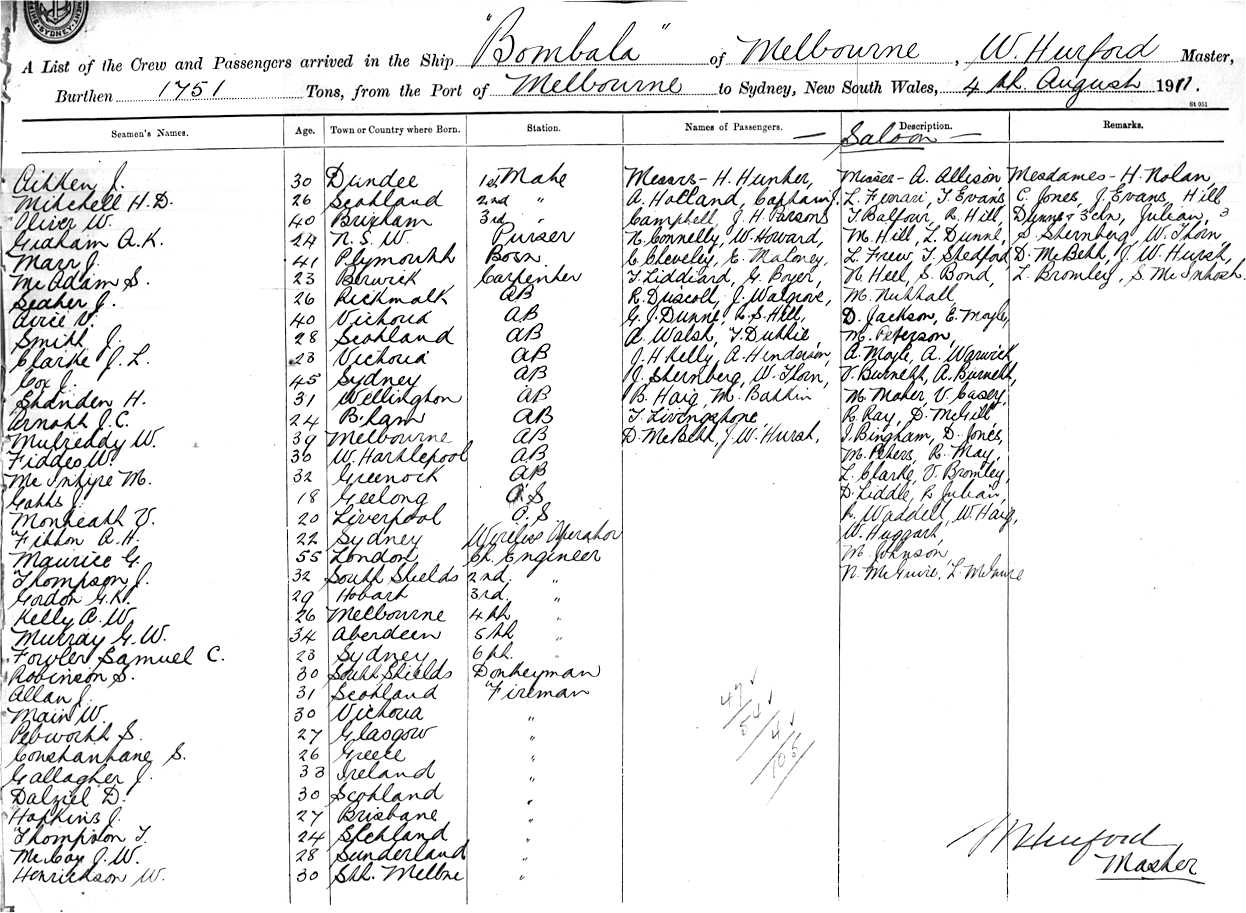 SYDNEY
A List of the Crew and Passengers arrived in the Ship "Bombala" of Melbourne, W. Hurford Master,
Burthen 1751 Tons, from the Port of Melbourne to Sydney, New South Wales, 4th August 1911.
St 051
Seamen's Names. Age. Town or Country where Born. Station. Names of Passengers. Description. Remarks.
— Saloon —
Aitken J. 30 Dundee 1st Mate Messrs - H. Hunter, Misses - A. Allison Mesdames - H. Nolan,
Mitchell H.D. 26 Scotland 2nd " A. Holland, Captain J. L. Ferrari, T. Evans C. Jones, J. Evans, Hill
Oliver W. 40 Brixham 3rd " Campbell, J. H. Parsons T. Balfour, R. Hill, Dunne & 3 chn, Julian, 3
Graham A.K. 24 N.S.W. Purser N. Connelly, W. Howard, M. Hill, L. Dunne, S. Sternberg, W. Thorn
Marr J. 41 Plymouth Bosn C. Cheveley, E. Maloney, L. Frew, T. Shedford D. McBeth, J. W. Hurst,
McAdam S. 23 Berwick Carpenter T. Liddiard, G. Boyer, N. Heel, S. Bond, L. Bromley, S. McIntosh
Seater J. 26 AB R. Driscoll, J. Walgrove, M. Nuthall
40 Victoria AB G. J. Dunne, R. S. Hill, D. Jackson, E. Moyle,
Smith J. 28 Scotland AB A. Walsh, T. Duthie M. Peterson,
Clarke J. L. 23 Victoria AB J. H Kelly, A. Henderson, A. Moyle, A. Warwick
Cox J. 45 Sydney AB J. Sternberg, W. Thorn, V. Burnett, A. Burnett,
Standen H. 31 Wellington AB B. Haig, M. Battin M. Maher, V. Casey,
Arnott J. C. 24 B.ham AB T. Livingstone R. Ray, D. McGill
Mulreddy W. 39 Melbourne AB D. McBeth, J. W. Hurst, J. Bingham, D. Jones,
Fiddes W. 30 W. Hartlepool AB M. Peters, R. May,
McIntyre M. 32 Greenock AB L. Clarke, V. Bromley,
Gatts J. 18 Geelong O.S D. Liddle, R. Julian,
Monteath V. 20 Liverpool O.S R. Waddell, W. Haig,
Fitton A. H. 22 Sydney Wireless Operator W. Huggart,
Maurice G. 55 London Ch. Engineer M. Johnson
Thompson J. 32 South Shields 2nd " N. McGuire, L. McGuire
Gordon G.K. 29 Hobart 3rd "
Kelly A. W. 26 Melbourne 4th "
Murray G. W. 34 Aberdeen 5th "
Fowler Samuel C. 23 Sydney 6th "
Robinson S. 30 South Shields Donkeyman
Allan J. 31 Scotland Fireman
Main W. 30 Victoria "
Pebworth S. 27 Glasgow "
Constantane S. 26 Greece "
Gallagher J. 33 Ireland "
Dalziel D. 30 Scotland "
Hopkins J. 27 Brisbane "
Thompson T. 24 Shetland "
McCoy J. W. 28 Sunderland "
Henrickson W. 30 Sth. Melbne "
47
54
4
105
W Hurford
Master